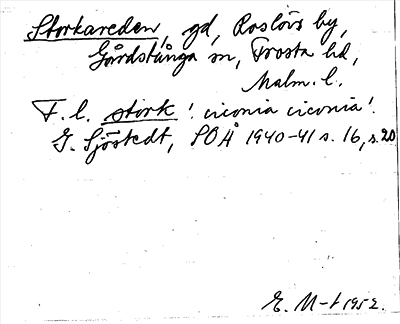 Storkareden, gd, Roslövs by,
Gårdstånga sn, Frosta hd,
Malm. l.
F. l. stork 'ciconia ciconia'.
G. Sjöstedt, SOÅ 1940-41 s. 16, s. 20
E. M-t 1952.